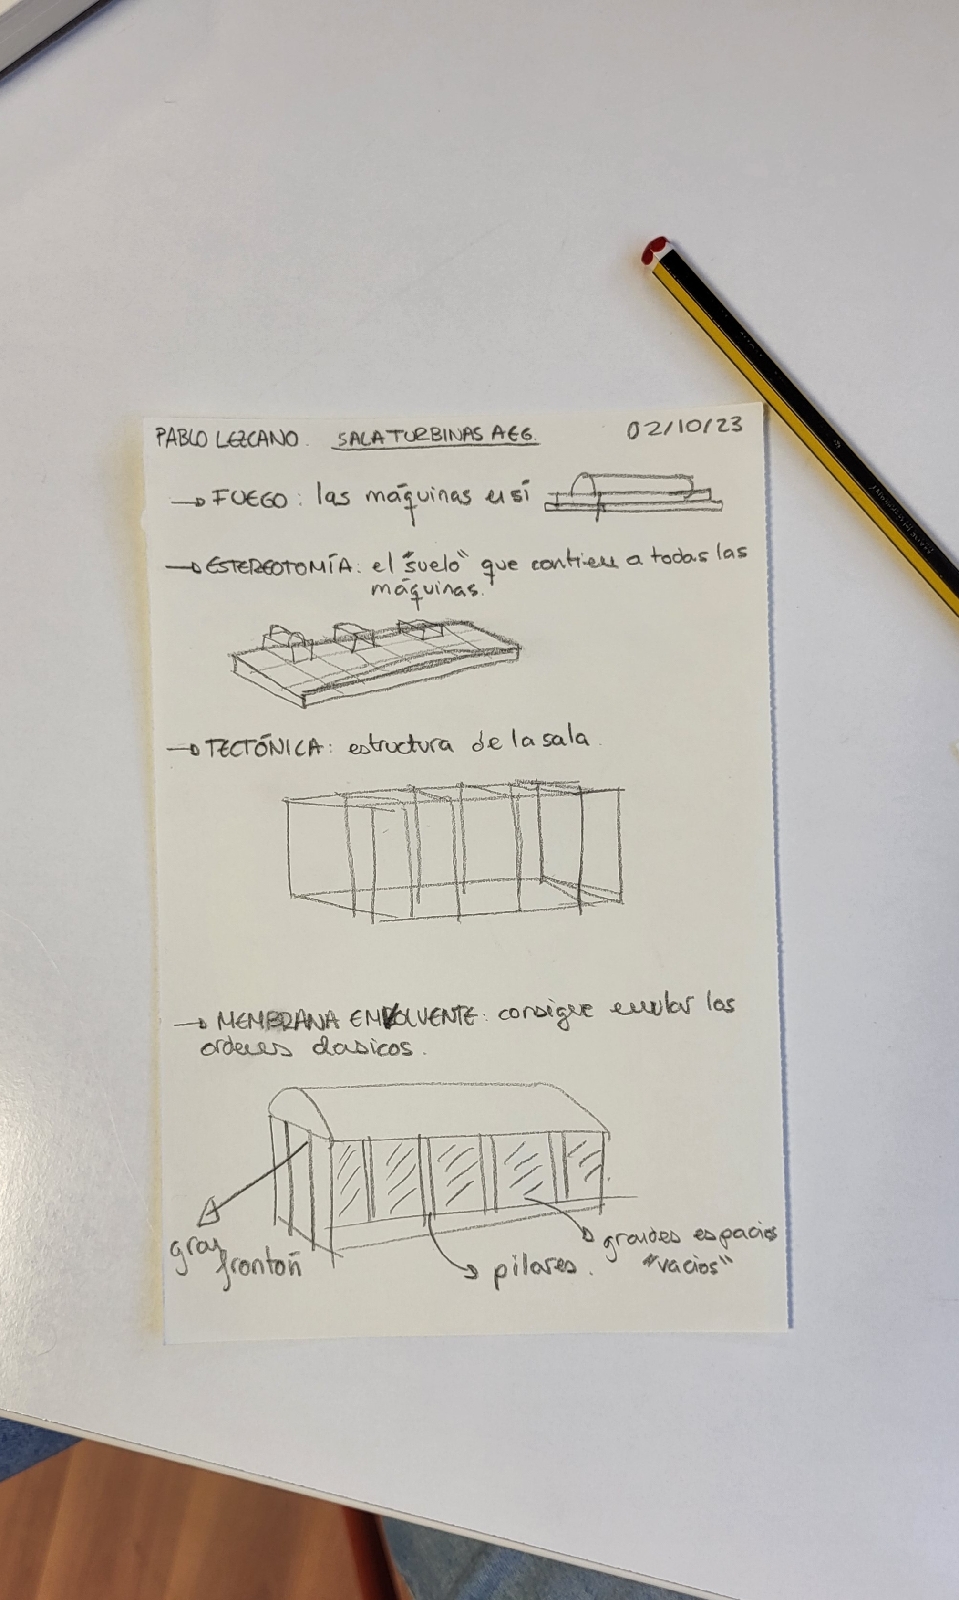 PABLO LEZCANO. SALA TURBINAS AEG. 02/10/23
→ FUEGO: las máquinas en sí
→ ESTEREOTOMÍA: el "suelo" que contiene a todas las
máquinas.
→ TECTÓNICA: estructura de la sala.
→ MEMBRANA ENVOLVENTE: consigue emular los
ordenes clasicos.
gran
frontón
pilares.
grandes espacios
"vacios"